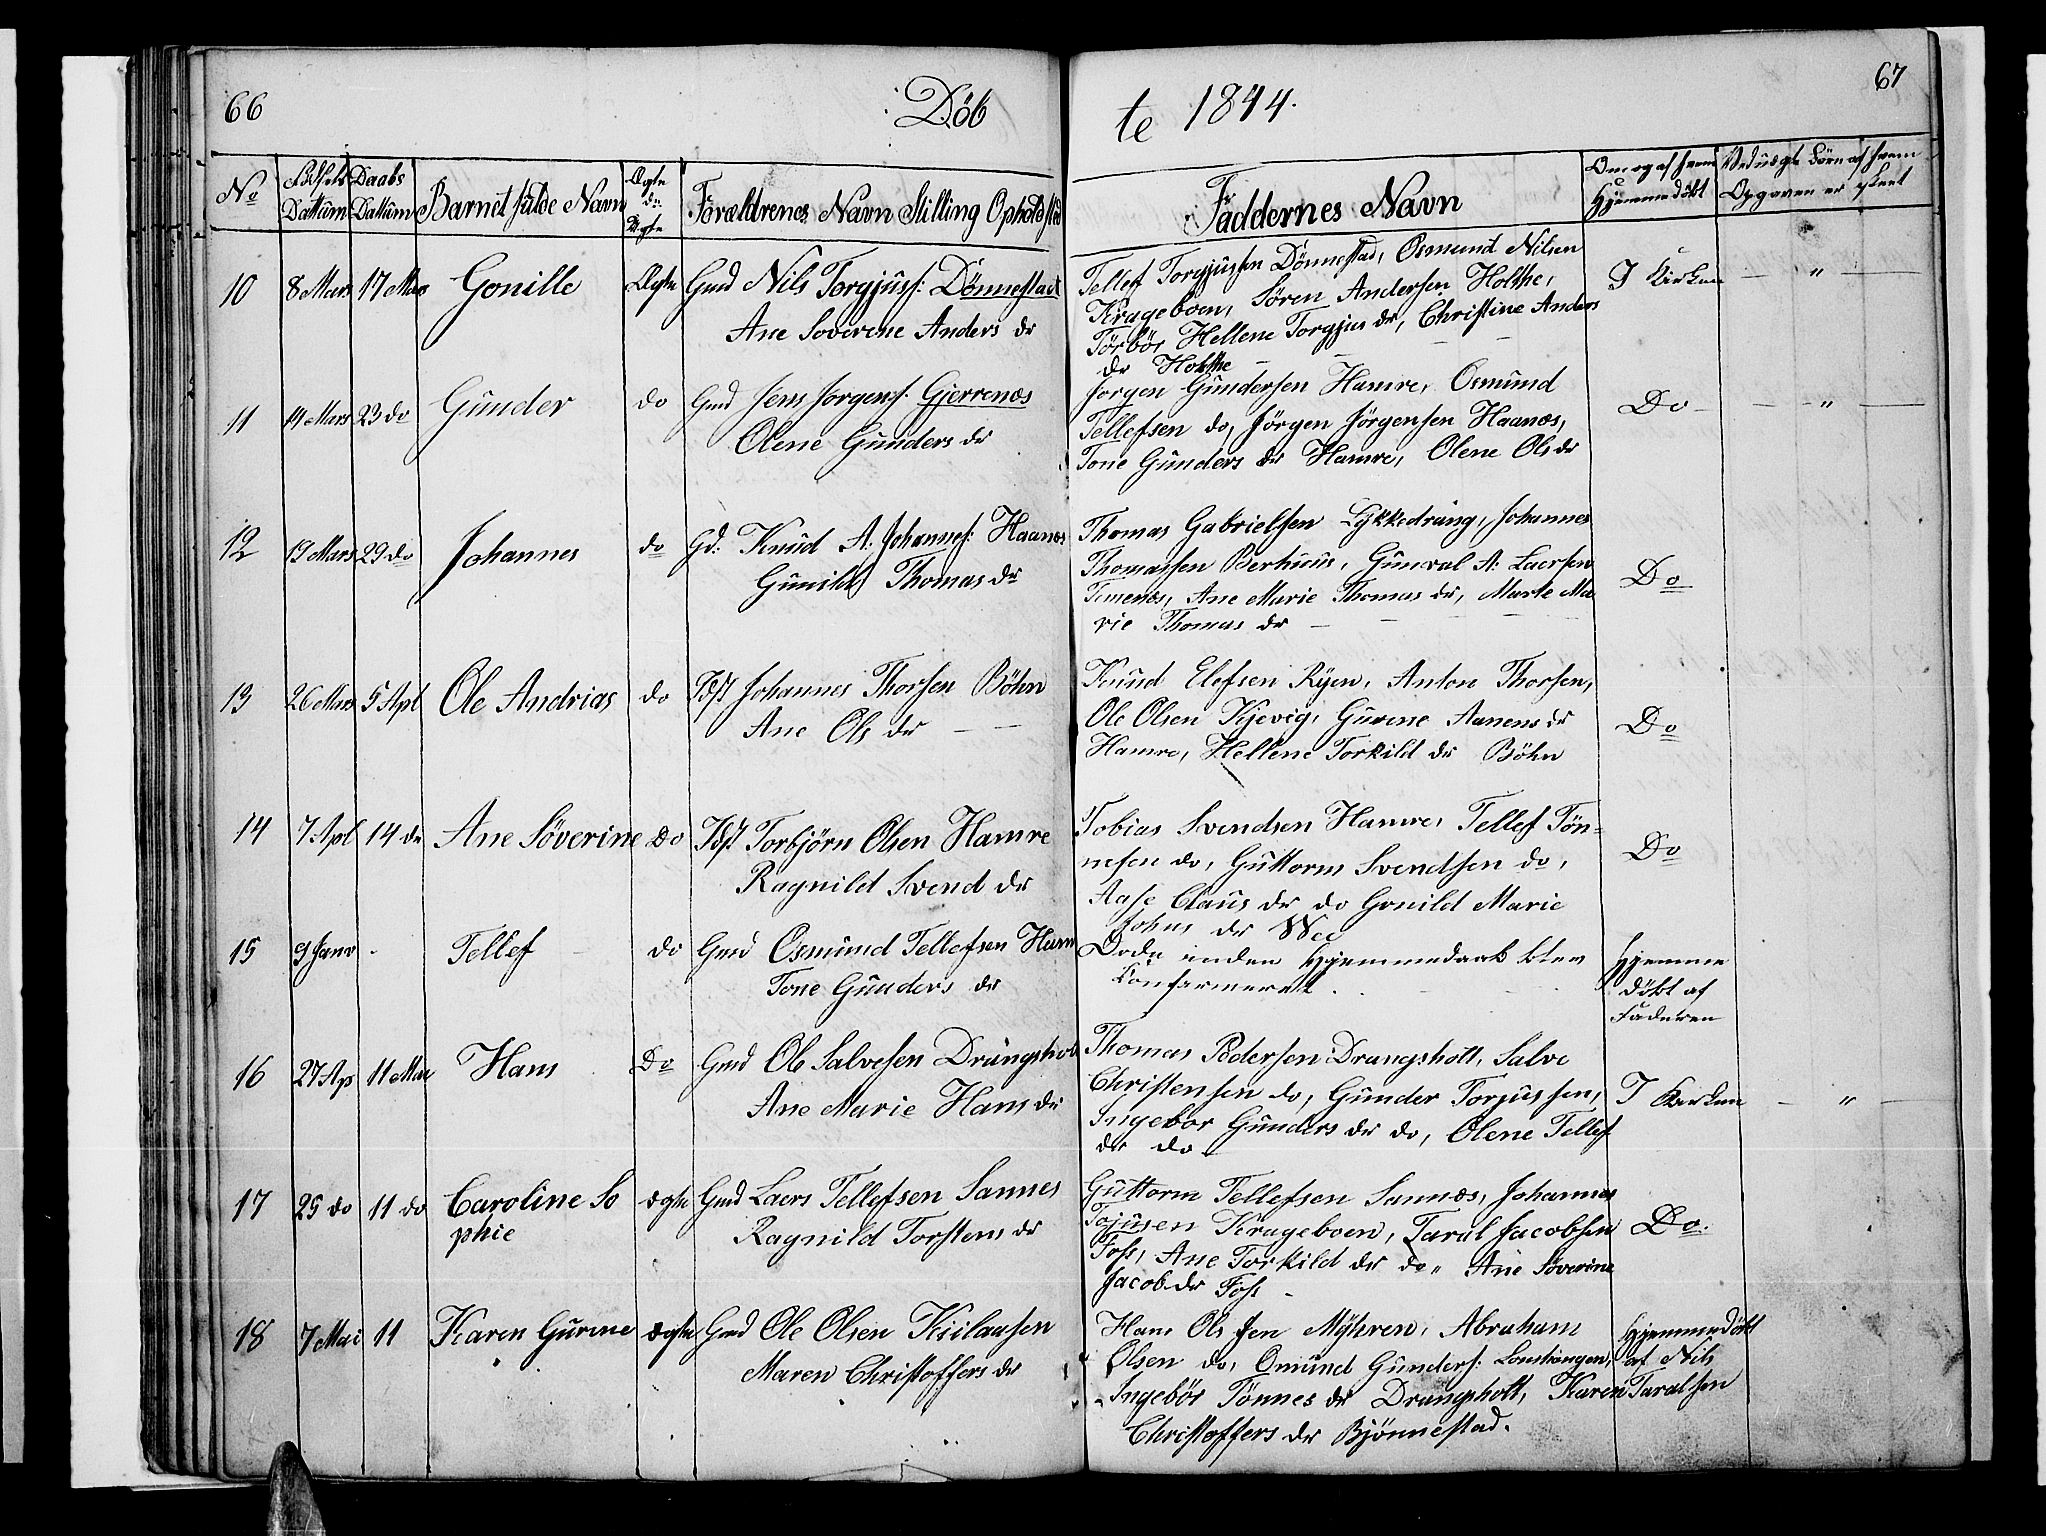 66
Döb
te 1844.
67
No
Födsels Dattum
Daabs Dattum
Barnet fulde Navn
Ægte
Forældrenes Navn Stilling Opholdsted
Faddernes Navn
Om og af hvem Hjemmedöbt
af hvem Opgaven er skeet
10 8 Mars 17 Mars Gonille Ægte Gmd Nils Torgjusf: Dönnestad
Ane Soverene Anders dr
Tellef Torgjussen Dönnestad, Osmund Nilsen
Krageboen, Sören Andersen Holthe,
Törbör Hellene Torgjus dr, Christine Anders
dr Holthe
I Kirken — " —
11 14 Mars 23 do Gunder do Gmd Jens Jorgens: Gjerrenæs
Olene Gunders dr
Jorgen Gundersen Hamre, Osmund
Tellefsen do, Jörgen Jörgensen Haanæs,
Tone Gunders dr Hamre, Olene Ols dr
Do — " —
12 19 Mars 29 do Johannes do Gd: Knud A. Johannes: Haanæs
Gunild Thomas dr
Thomas Gabrielsen Lykkedrang, Johannes
Thomassen Berhuus, Gunval A: Laersen
Timenæs, Ane Marie Thomas dr, Marte Ma
rie Thomas dr
Do
13 26 Mars 5 Apl Ole Andrias do Idst Johannes Thorsen Böhn
Ane Ols dr
Knud Elefsen Ryen, Anton Thorsen,
Ole Olsen Kjevig, Gurine Aanens dr
Hamre, Hellene Torkild dr Böhn
Do
14 7 Apl 14 do Ane Söverine Do Idst Torbjörn Olsen Hamre
Ragnild Svend dr
Tobias Svendsen Hamre, Tellef Tön=
nesen do, Guttorm Svendsen do,
Aase Claus dr do Gonild Marie
Johns dr Wee
Do
15 9 Janv Tellef do Gmd Osmund Tellefsen Ham
Tone Gunders dr
Döde inden Hjemmedaab blev
Konfarmeret.
Hjemme
döbt af
Faderen
16 27 Ap 11 Mai Hans Do Gmd Ole Salvesen Drangshol
Ane Marie Hans dr
Thomas Pedersen Drangshott, Salve
Christensen do, Gunder Torjussen,
Ingebor Gunders dr do, Olene Tellef
dr do
I Kirken — " —
17 25 do 11 do Caroline So
phie
ægte Gmd Laers Tellefsen Sannes
Ragnild Torstens dr
Guttorm Tellefsen Sannæs, Johannes
Tojusen Krageboen, Taral Jacobsen
Foss, Ane Torkild dr do " Ane Söverine
Jacob dr Foss
Do.
18 7 Mai 11 Karen Gurine ægte Gmd Ole Olsen
Maren Christoffers dr
Hans Ols sen Myhren, Abraham
Olsen do, Omund Gunders:
Ingebör Tönnes dr Drangshott, Karen
Christoffers dr Bjönnestad.
Hjemmedöbt
af Nils
Taralsen